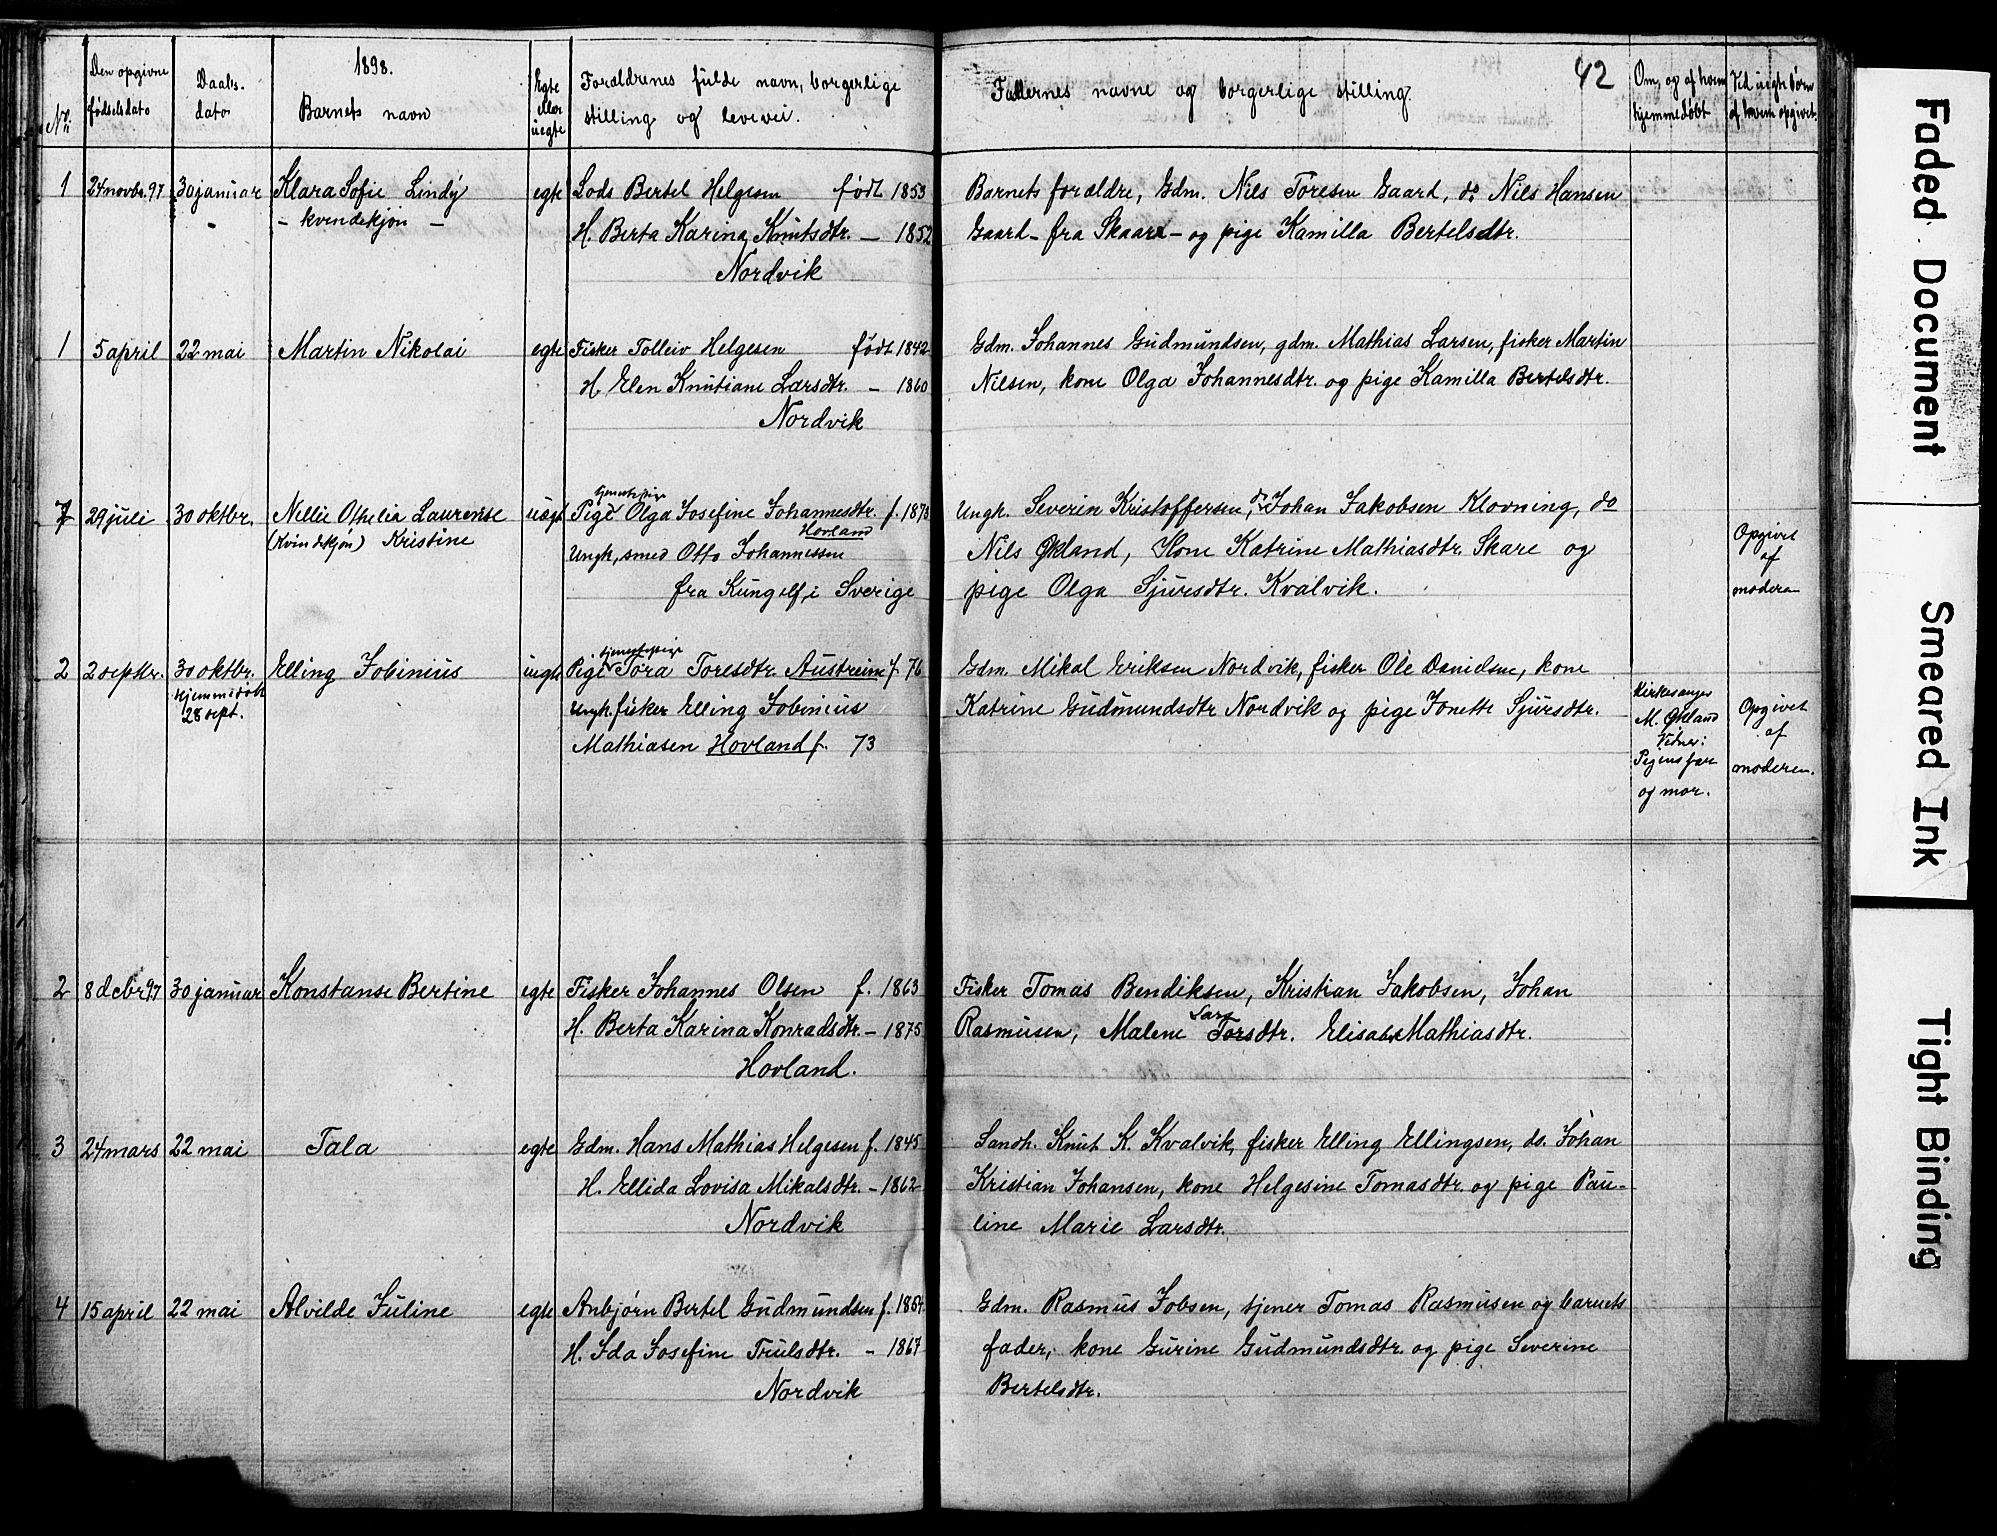 1898.
42
Nr.
Den opgivne fødselsdato
Daabs-dato
Barnets navn
Egte eller uegte
Forældrenes fulde navn, borgerlige stilling og levevei.
Faddernes navne og borgerlige stilling.
Om, og af hvem hjemmedøbt
Ved uegte børn af hvem opgivet.
1 24 novbr. 97 30 januar Klara Sofie Lindy egte Lods Bertel Helgesen født 1853 Barnets forældre, Gdm. Nils Toresen Gaard, do Nils Hansen
- kvendekjøn - H. Berta Karina Knutsdtr. — 1852 Gaard - fra Skaare - og pige Kamilla Bertelsdtr.
Nordvik
1 5 april 22 mai Martin Nikolai egte Fisker Tolleiv Helgesen født 1842 Gdm. Johannes Gudmundsen, gdm. Mathias Larsen, fisker Martin
H. Elen Knutiane Larsdtr. — 1860 Nilsen, kone Olga Johannesdtr. og pige Kamilla Bertelsdtr.
Nordvik
tjenestepige
29 juli 30 oktbr. Nellie Othelia Laurense uegt Pige Olga Josefine Johannesdtr. f. 1878 Ungk. Severin Kristoffersen, do Johan Jakobsen Klovning, do
(kvindekjøn) Kristine Hovland
Ungk, smed Otto Johannessen Nils Økland, kone Katrine Mathiasdtr. Skare og Opgivet af
fra Kungelf i Sverige pige Olga Sjursdtr. Kvalvik. moderen
tjenestepige
2 2 septbr. 30 oktbr. Elling Jobinius uegte Pige Tora Toresdtr. Austreim f. 76 Gdm. Mikal Eriksen Nordvik, fisker Ole Danielsen, kone
Hjemmedøbt 28 sept. Ungk. fisker Elling Jobinius Katrine Gudmundsdtr Nordvik og pige Jonette Sjursdtr. Kirkesanger M. Økland Opgivet af
Mathiasen Hovland f. 73 Vidner: Pigens far og mor. moderen.
2 8 decbr 97 30 januar Konstanse Bertine egte Fisker Johannes Olsen f. 1863 Fisker Tomas Bendiksen, Kristian Jakobsen, Johan
Lars
H. Berta Karina Konradsdtr. — 1875 Rasmusen, Malene Torsdtr. Elisabet Mathiasdtr.
Hovland.
3 24 mars 22 mai Tala egte Gdm. Hans Mathias Helgesen f. 1845 Landh. Knut K. Kvalvik, fisker Elling Ellingsen, do. Johan
H. Ellida Lovisa Mikalsdtr. — 1862 Kristian Johansen, kone Helgesine Tomasdtr. og pige Pau-
Nordvik line Marie Larsdtr.
4 15 april 22 mai Alvilde Juline egte Anbjørn Bertel Gudmundsen f. 1864. Gdm. Rasmus Jobsen, tjener Tomas Rasmusen og barnets
H. Ida Josefine Trulsdtr. — 1867 fader, kone Gurine Gudmundsdtr. og pige Severine
Nordvik Bertelsdtr.
Faded Document
Smeared Ink
Tight Binding